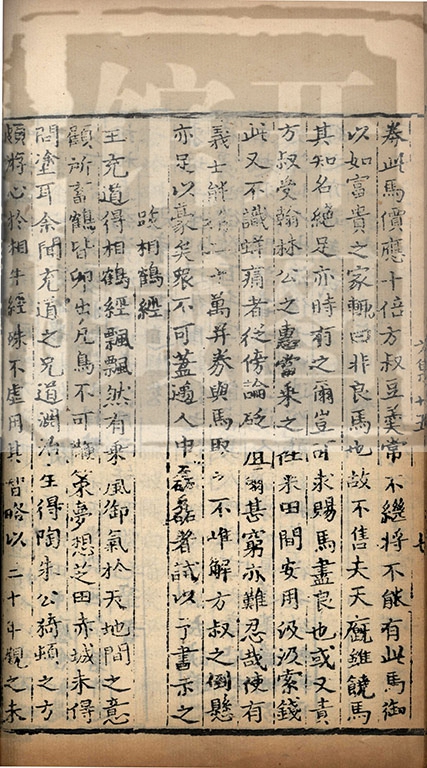 奉此馬價應十倍方叔豆羹常不繼將不能有此馬御
以如富貴之家輒曰非良馬也故不售夫天廐雖饒馬
其知名絶足亦時有之爾豈可求賜馬盡良也或又責
方叔受翰林公之惠當乘之往來田間安用汲汲索錢
此又不識蛘痛者從傍論砭疽爾甚窮亦難忍哉使有
義士能二十萬并券與馬取之不唯解方叔之倒懸
亦足以豪矣衆不可蓋遇人中磊磊者試以予書示之
跋相鶴經
王充道得相鶴經飄飄然有乘風御氣於天地間之意
顧所畜鶴皆卵出凡鳥不可策夢想芝田赤城未得
問塗耳余聞充道之兄道淵治生得陶朱公猗頓之方
頗將心於相牛經殊不虛用其智略以二十年觀之未
十五
七